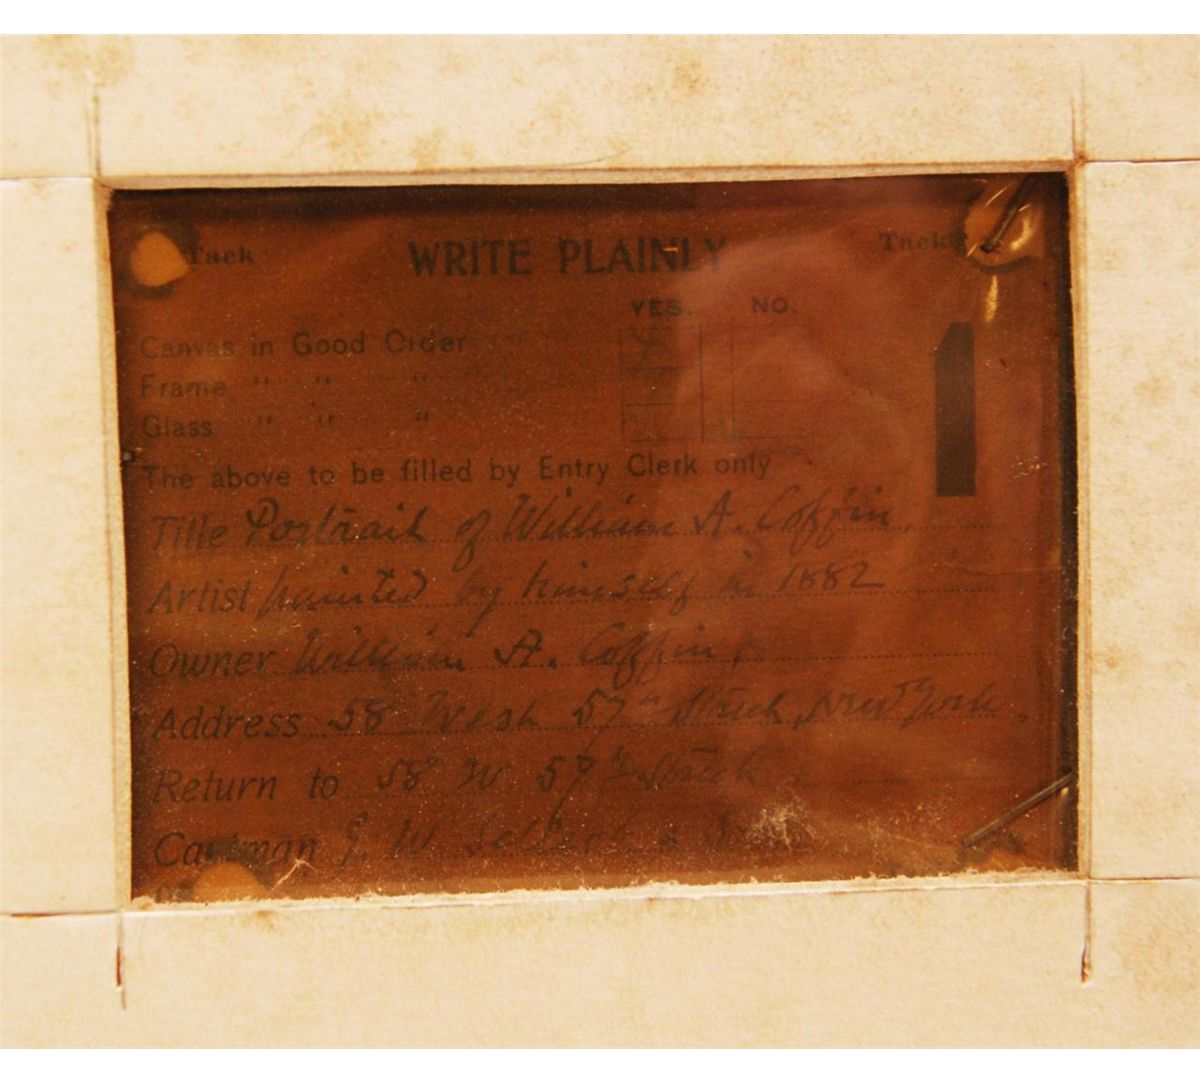 Tack WRITE PLAINLY Tack
YES. NO.
Canvas in Good Order
Frame " " "
Glass " " "
The above to be filled by Entry Clerk only
Title Portrait of William A. Coffin.
Artist painted by himself in 1882
Owner William A. Coffin.
Address 58 West 57th Street, New York.
Return to 58 W. 57th Street
Cartman W.